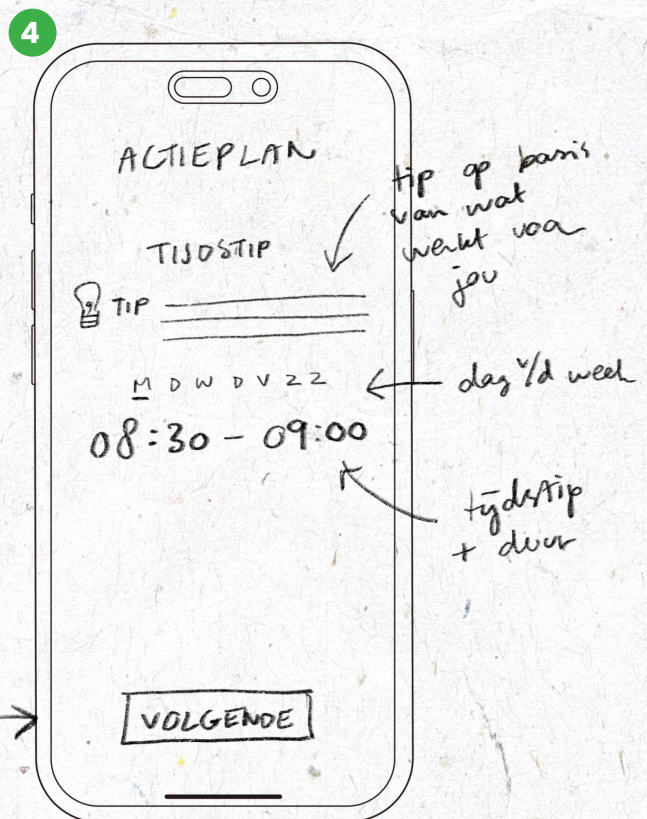 4
ACTIEPLAN
TIJDSTIP
TIP
M D W D V Z Z
08:30 - 09:00
VOLGENDE
tip op basis
van wat
werkt voor
jou
dag v/d week
tijdstip
+ duur